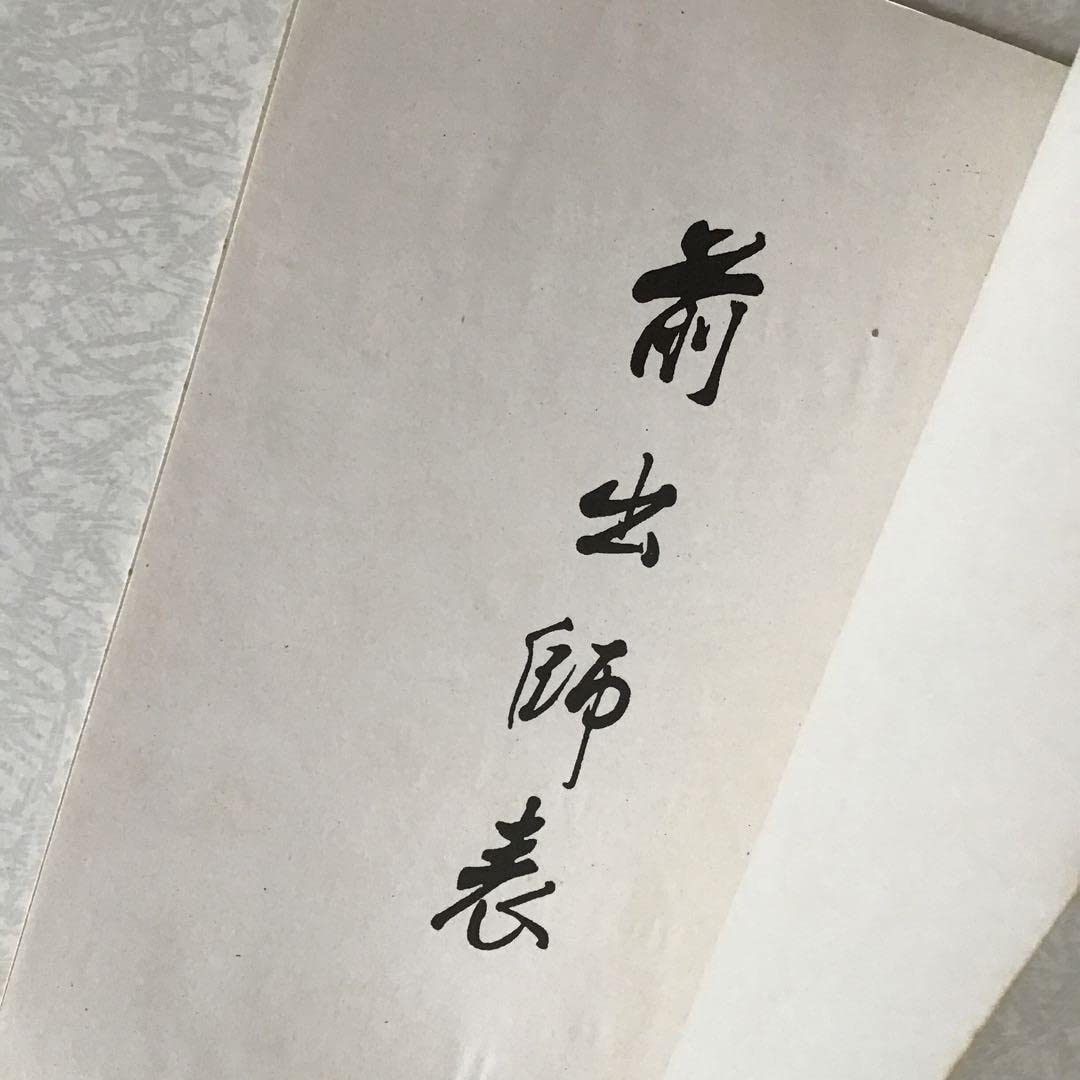 前出師表